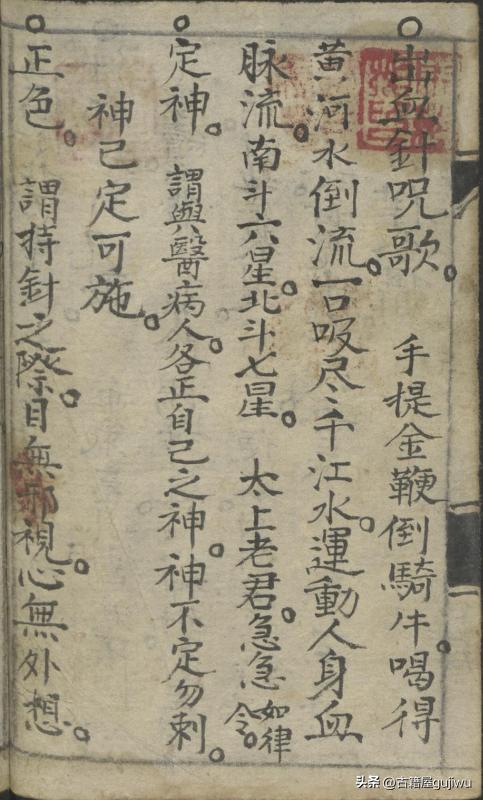 ○出血針呪歌。 手提金鞭倒騎牛。喝得
黄河水倒流。一口吸尽千江水。運動人身血
脉流。南斗六星。北斗七星。 太上老君。急急如律令。
○定神。 謂與醫病人。各正自己之神。神不定勿刺。
神已定可施。
○正色。 謂持針之際。目無邪視。心無外想。
头条 @古籍屋gujiwu